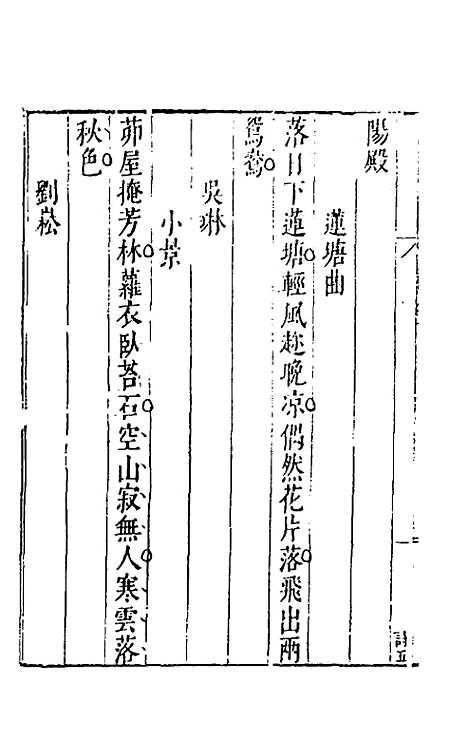 陽殿
蓮塘曲
落日下蓮塘輕風趁晚凉偶然花片落飛出兩
鴛鴦
吳琳
小景
茆屋掩芳林蘿衣臥苔石空山寂無人寒雲落
秋色
劉崧